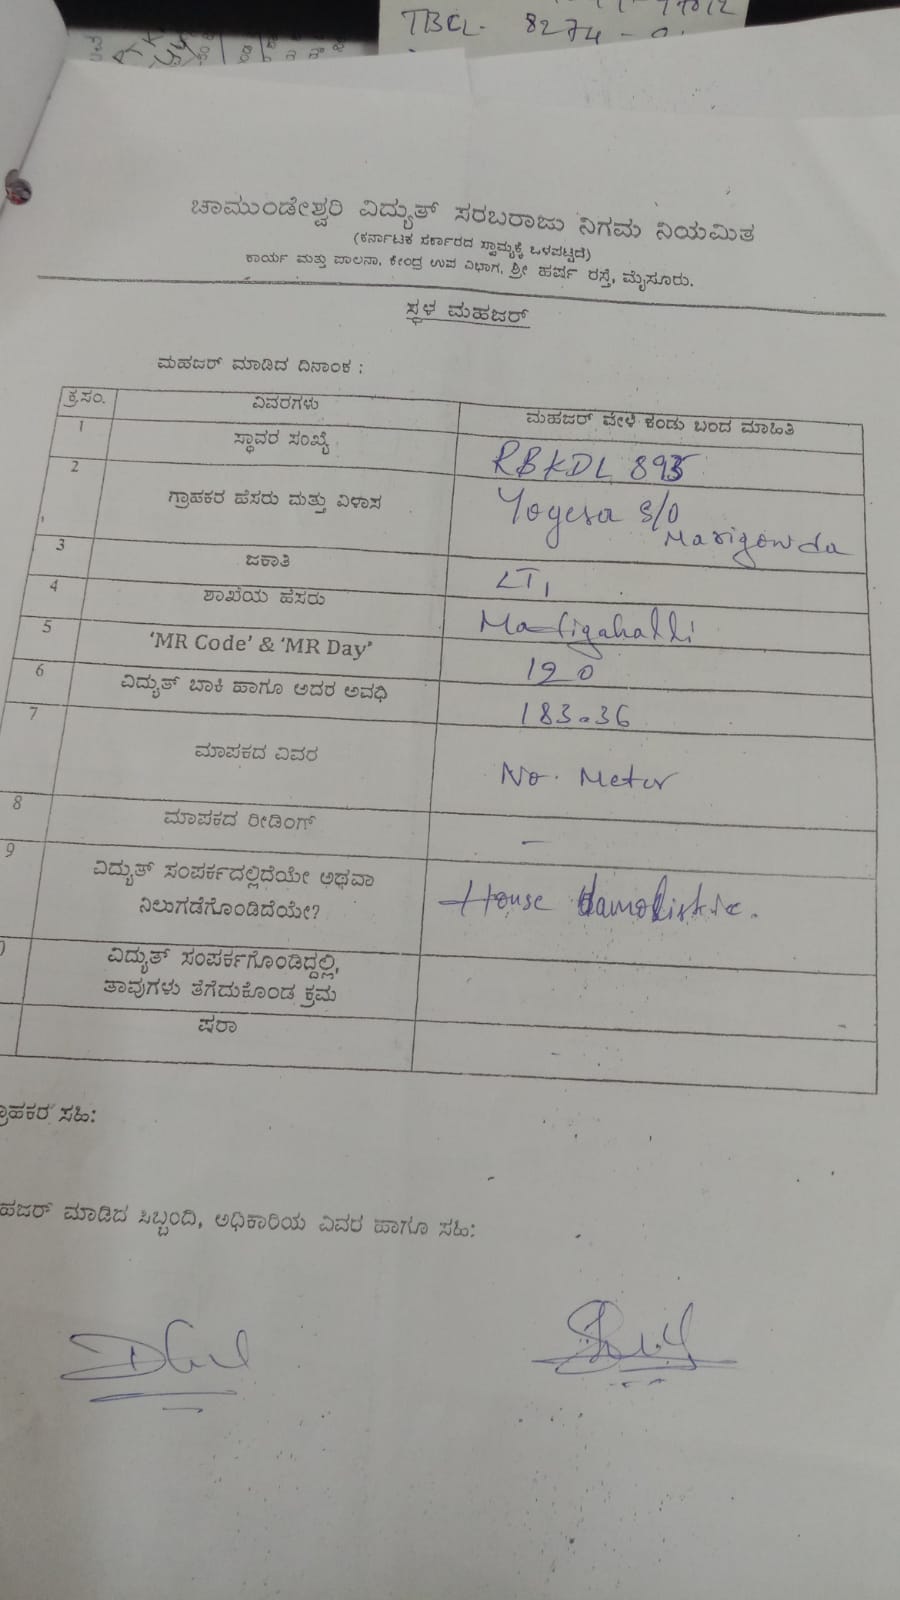 TBCL. 8274-
ಚಾಮುಂಡೇಶ್ವರಿ ವಿದ್ಯುತ್ ಸರಬರಾಜು ನಿಗಮ ನಿಯಮಿತ
(ಕರ್ನಾಟಕ ಸರ್ಕಾರದ ಸ್ವಾಮ್ಯಕ್ಕೆ ಒಳಪಟ್ಟಿದೆ)
ಕಾರ್ಯ ಮತ್ತು ಪಾಲನಾ, ಕೇಂದ್ರ ಉಪ ವಿಭಾಗ, ಶ್ರೀ ಹರ್ಷ ರಸ್ತೆ, ಮೈಸೂರು.
ಸ್ಥಳ ಮಹಜರ್
ಮಹಜರ್ ಮಾಡಿದ ದಿನಾಂಕ :
ಕ್ರ.ಸಂ. ವಿವರಗಳು ಮಹಜರ್ ವೇಳೆ ಕಂಡು ಬಂದ ಮಾಹಿತಿ
1 ಸ್ಥಾವರ ಸಂಖ್ಯೆ RBKDL 895
2 ಗ್ರಾಹಕರ ಹೆಸರು ಮತ್ತು ವಿಳಾಸ Yogesa S/O
Marigowda
3 ಜಕಾತಿ LT1
4 ಶಾಖೆಯ ಹೆಸರು
5 'MR Code' & 'MR Day' 120
6 ವಿದ್ಯುತ್ ಬಾಕಿ ಹಾಗೂ ಅದರ ಅವಧಿ 183.36
7 ಮಾಪಕದ ವಿವರ No. Meter
8 ಮಾಪಕದ ರೀಡಿಂಗ್ -
9 ವಿದ್ಯುತ್ ಸಂಪರ್ಕದಲ್ಲಿದೆಯೇ ಅಥವಾ
ನಿಲುಗಡೆಗೊಂಡಿದೆಯೇ? House
ವಿದ್ಯುತ್ ಸಂಪರ್ಕಗೊಂಡಿದ್ದಲ್ಲಿ,
ತಾವುಗಳು ತೆಗೆದುಕೊಂಡ ಕ್ರಮ
ಷರಾ
ಗ್ರಾಹಕರ ಸಹಿ:
ಹಜರ್ ಮಾಡಿದ ಸಿಬ್ಬಂದಿ, ಅಧಿಕಾರಿಯ ವಿವರ ಹಾಗೂ ಸಹಿ: